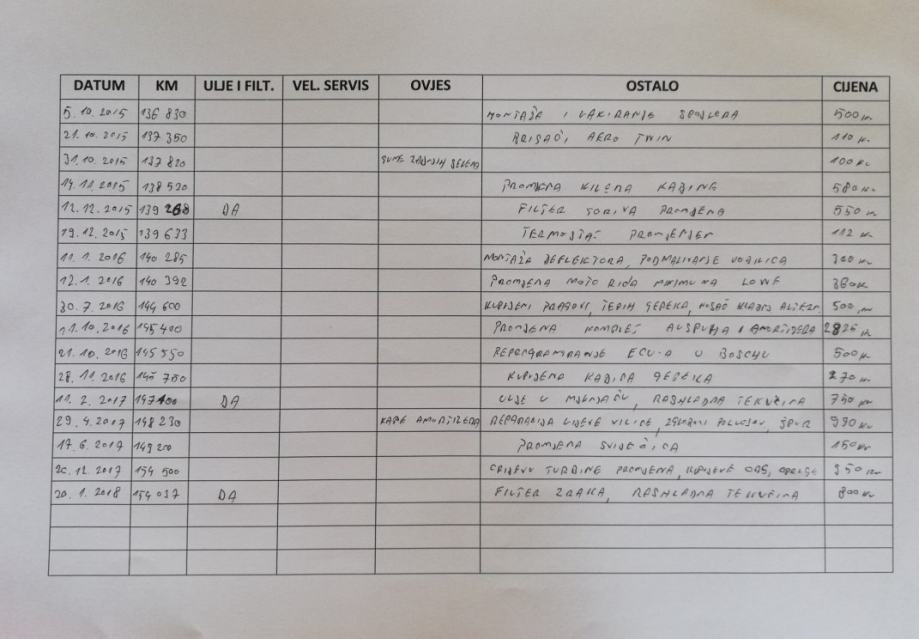 DATUM KM ULJE I FILT. VEL. SERVIS OVJES OSTALO CIJENA
5.10.2015 136 830 MONTAŽA I LAKIRANJE SPOJLERA 500 kn
21.10.2015 137 350 BRISAČI, AERO TWIN 110 kn
31.10.2015 137 820 GUME ZADNJIH 100 kn
14.11.2015 138 520 PROMJENA KABINE 580 kn
12.12.2015 139 268 DA FILTER GORIVA PROMJENA 550 kn
19.12.2015 139 633 TERMOSTAT PROMJENJEN 112 kn
11.1.2016 140 285 MONTAŽA DEFLEKTORA, PODMAZIVANJE VODILICA 300 kn
12.1.2016 140 392 PROMJENA MOTORIĆA 380 kn
30.7.2016 144 600 KUPLJENI PRAGOVI, TEPIH GEPEKA, 500 kn
11.10.2016 145 400 PROMJENA KOMPLET AUSPUHA I AMORTIZERA 2826 kn
21.10.2016 145 550 REPROGRAMIRANJE ECU-A U BOSCHU 500 kn
28.11.2016 146 750 KUPLJENA GEPEKA 270 kn
11.2.2017 147100 DA ULJE U MJENJAČU, RASHLADNA TEKUĆINA 740 kn
29.4.2017 148 230 KAPE AMORTIZERA REPARACIJA LIJEVE VILICE, 990 kn
17.6.2017 149 200 PROMJENA SVIJEĆICA 150 kn
20.12.2017 154 500 CRIJEVO TURBINE PROMJENA, 350 kn
20.1.2018 154 037 DA FILTER ZRAKA, RASHLADNA TEKUĆINA 800 kn